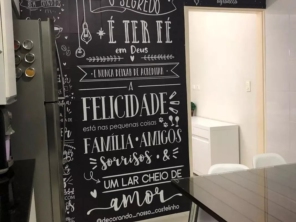 O SEGREDO
É TER FÉ
em Deus
E NUNCA DEIXAR DE ACREDITAR
A
FELICIDADE
está nas pequenas coisas
FAMÍLIA • AMIGOS
sorrisos • &
UM LAR CHEIO DE
amor
@decorando_nosso_castelinho